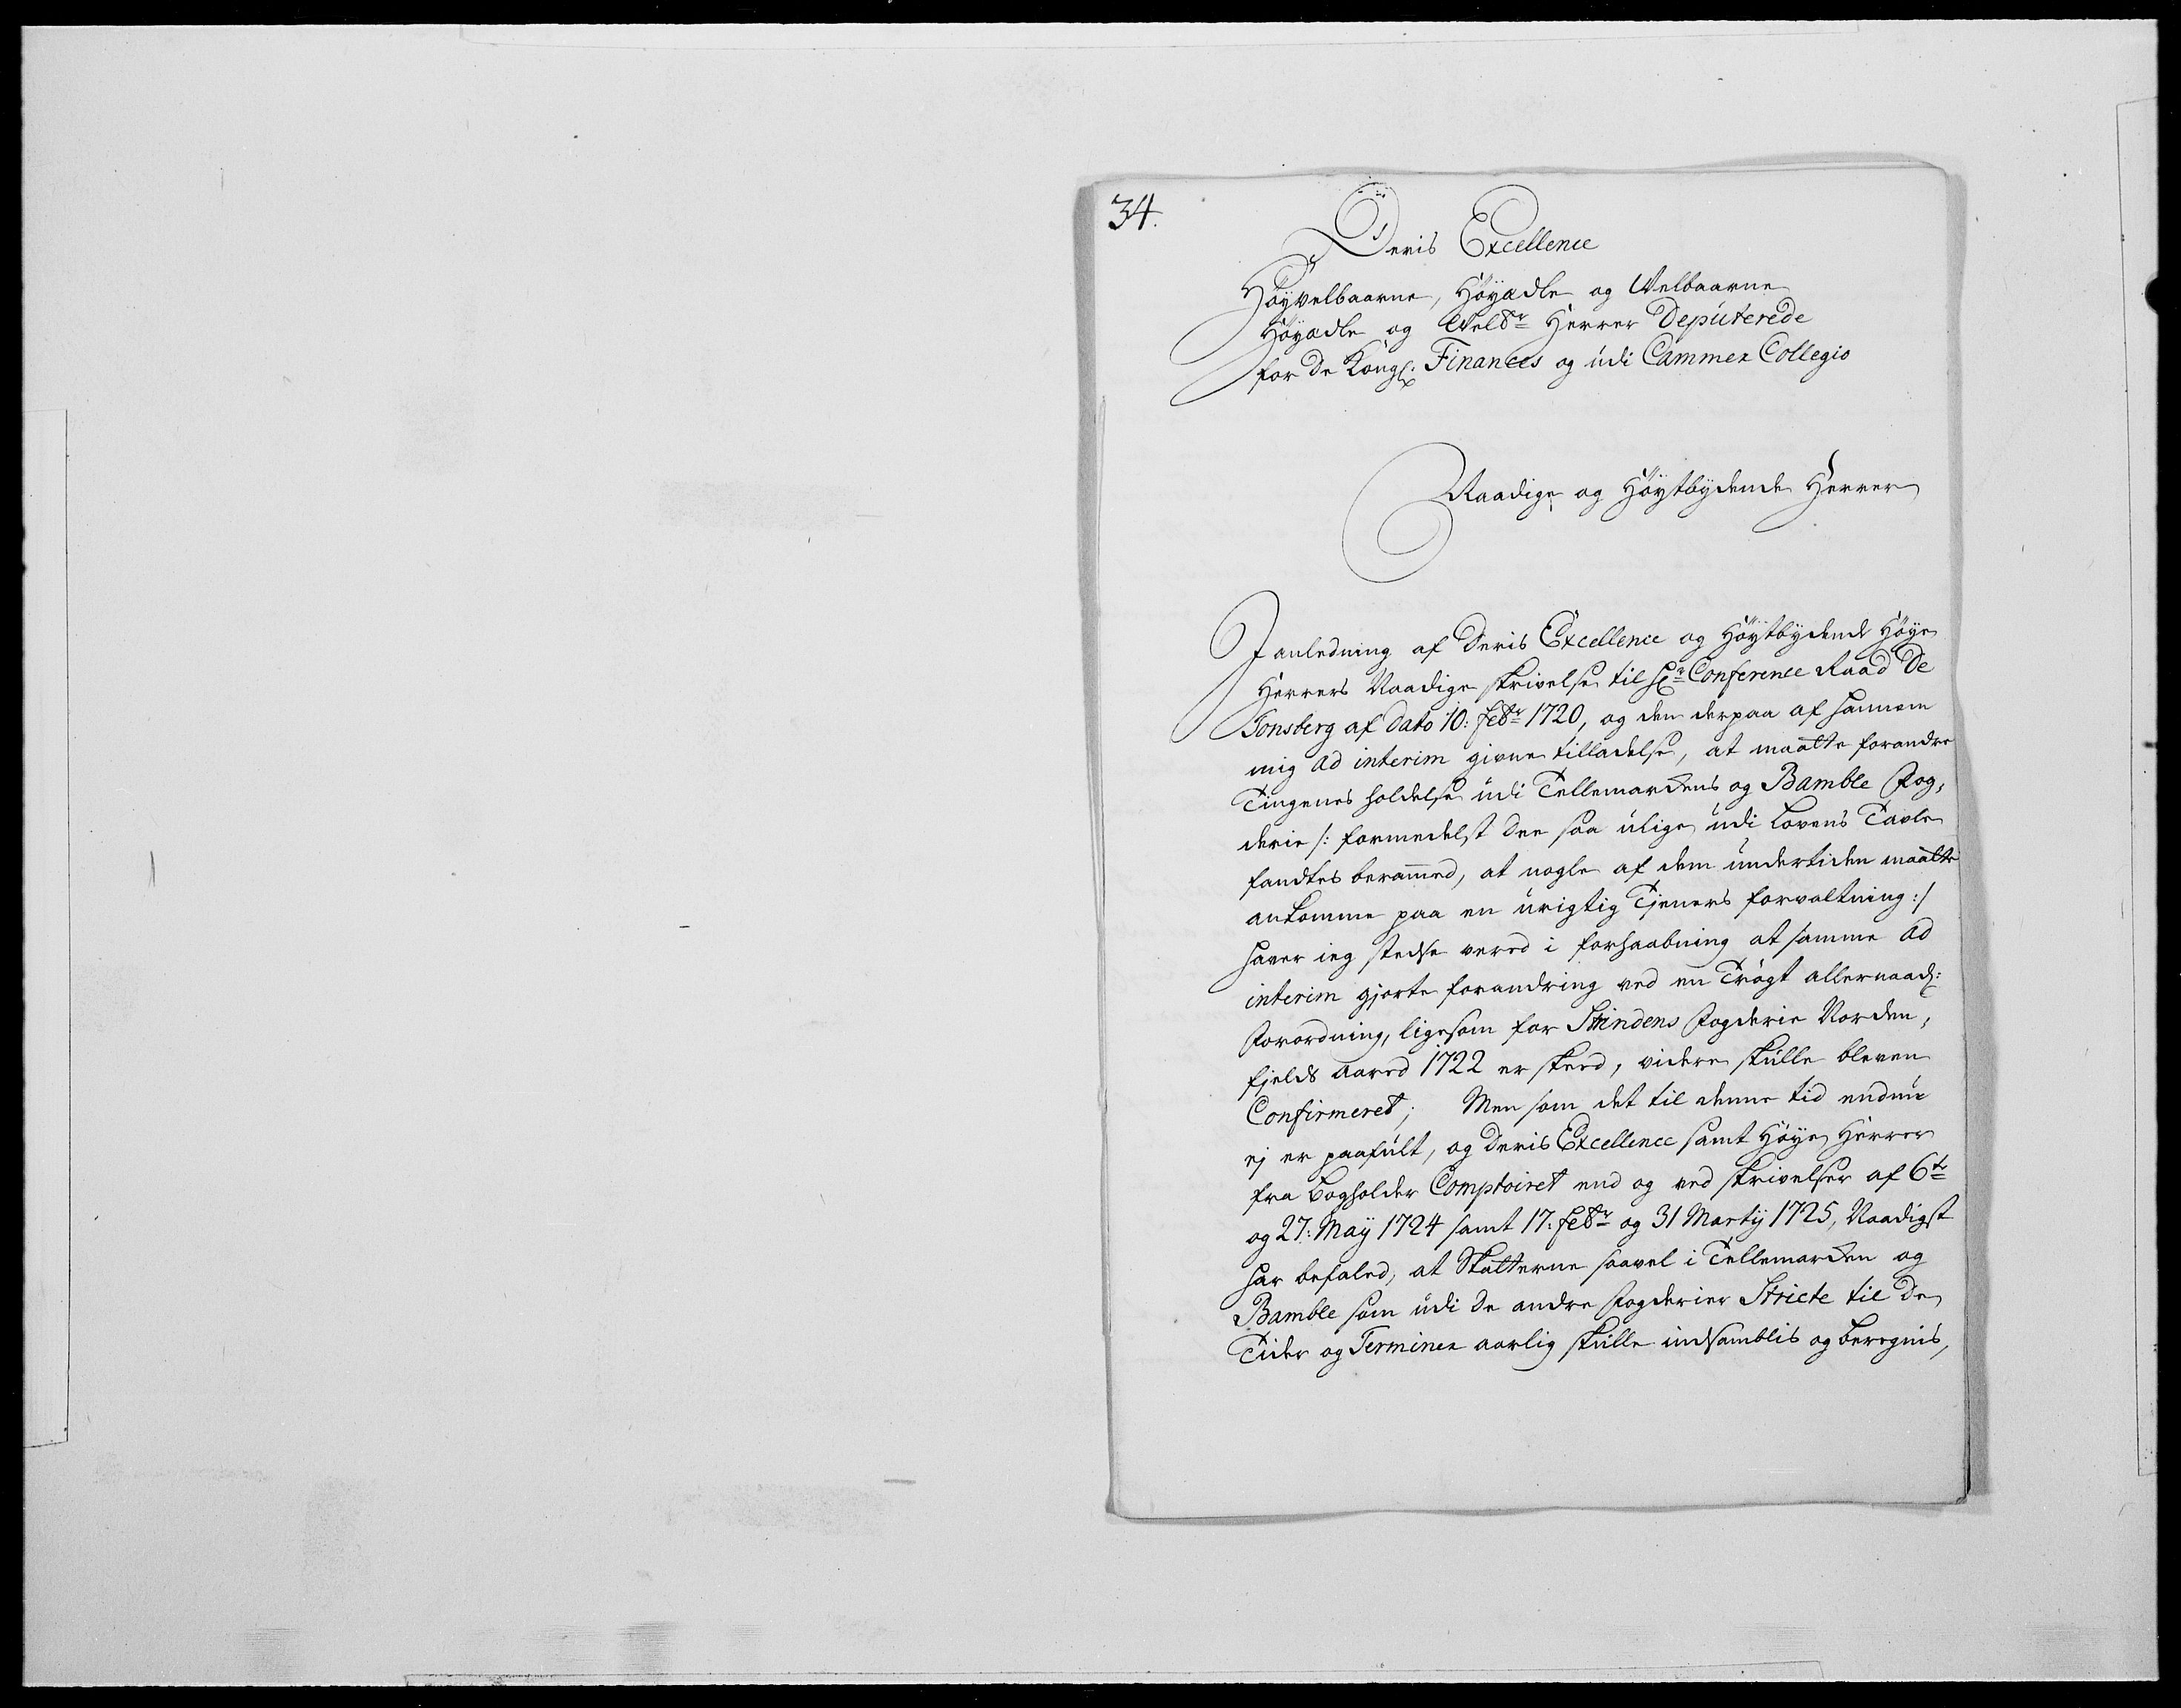 34.
Deris Excellence
Höyvelbaarne, Höyædle og Velbaarne
Höyædle og Velbr Herrer Deputerede
for de Kongl: Finances og udi Cammer Collegio
Naadige og Höytbydende Herrer
I anledning af Deris Excellence og Höytbydende Höye
Herrers Naadige skrivelse til Hr Conference Raad De
Tonsberg af dato 10: Febr 1720, og den derpaa af hannem
mig ad interim givne tilladelse, at maatte forandre
Tingenes holdelse udi Tellemarkens og Bamble Fog,
derie /: formedelst den saa ulige udi Lovens Tavle
fandtes berammed, at nogle af dem undertiden maatte
ankomme paa en urigtig Tjeners forvaltning :/
haver ieg stedse vered i forhaabning at samme ad
interim gjorte forandring ved en Trögt allernaad:
Forordning, ligesom for Strindens Fogderie Norden,
fjelds Aared 1722 er skeed, videre skulle bleven
Confirmeret; Men som det til denne tid endnu
ej er paafult, og Deris Excellence samt Höye Herrer
fra Bogholder Comptoiret end og ved skrivelser af 6te
og 27: Maÿ 1724 samt 17: Febr og 31 Martÿ 1725, Naadigst
har befaled, at Skatterne saavel i Tellemarken og
Bamble som udi de andre Fogderier Stricte til de
Tider og Terminer aarlig skulle indsamblis og beregnis,